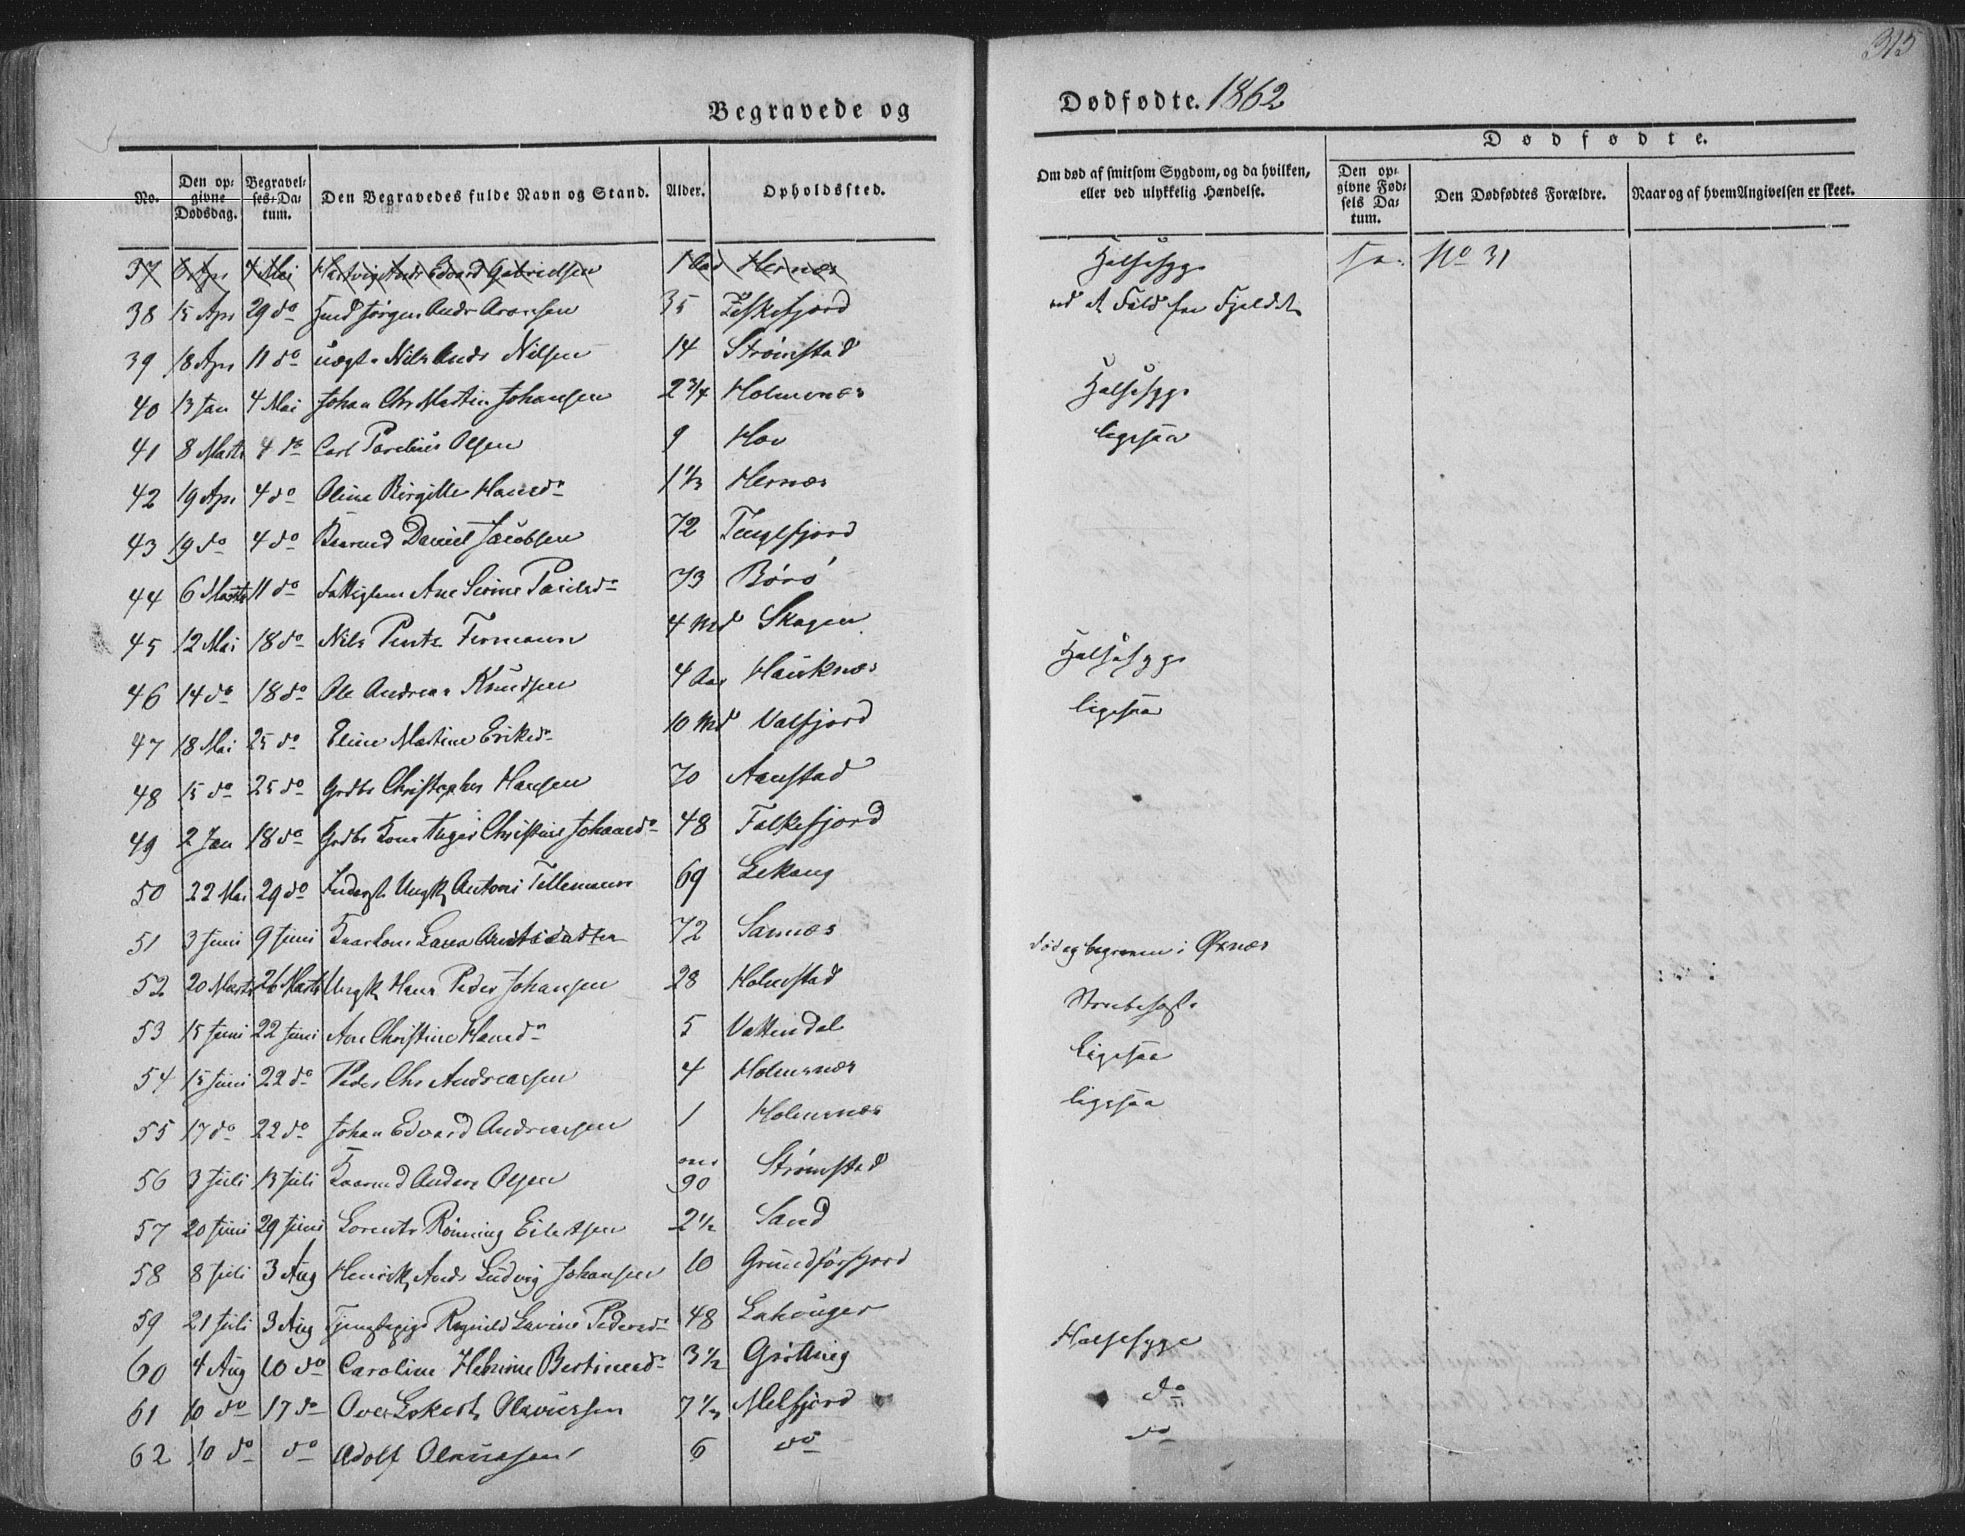 315
Begravede og Dødfødte. 1862
No.
Den opgivne Dødsdag.
Begravelses-Datum.
Den Begravedes fulde Navn og Stand.
Alder.
Opholdssted.
Om død af smitsom Sygdom, og da hvilken, eller ved ulykkelig Hændelse.
Dødfødte.
Den opgivne Fødsels Datum.
Den Dødfødtes Forældre.
Naar og af hvem Angivelsen er skeet.
37 6 Apr 4 Mai Hartvig Andr Edvard Gabrielsen 1 Aar Hernæs Halsesyge No 31
38 15 Apr 29 do Jørgen Andr Aronsen 35 Eskefjord ved et Fald fra Fjeldet
39 18 Apr 11 do uægte Nils Ands Nilsen 14 Strømstad
40 13 Jan 4 Mai Johan Chr Martin Johansen 2 3/4 Holmsnæs Halsesyge
41 8 Marts 4 do Carl Parelius Olsen 9 Hov ligesaa
42 19 Apr 4 do Oline Birgitte Hansdr 1 1/3 Hernæs
43 19 do 4 do Daniel Jacobsen 72
44 6 Marts 11 do Ane Serine 73 Børø
45 12 Mai 18 do Nils Pentz Fermann 4 Md Skagen Halsesyge
46 14 do 18 do Ole Andreas Knudsen 4 Aar Hauknæs ligesaa
47 18 Mai 25 do Eline Martine Eriksdr 10 Md Valfjord
48 15 do 25 do Grdbr Christopher Hansen 70 Aanstad
49 2 Jan 18 do Grdbr Kone Inger Christine Johansdr 48 Falkefjord
50 22 Mai 29 do Ungk Antoni Tellemann 69 Lekang
51 3 Juni 9 Juni Lava 72 Sannæs død og begraven i Øxnæs
52 20 Marts 26 Marts Ungk Hans Peder Johansen 28 Holmstad
53 15 Juni 22 Juni Ane Christine Hansdr 5 Vattendal Strubehoste
54 15 Juni 22 do Peder Chr Andreassen 4 Holmsnæs ligesaa
55 17 do 22 do Johan Edvard Andreassen 1 Holmsnæs ligesaa
56 3 Juli 13 Juli Kaarmd Anders Olsen 90 Strømstad
57 20 Juni 29 Juni Lorents Rönning Eilertsen 2 1/2 Sand
58 8 Juli 3 Aug Henrik Ands Ludvig Johansen 10 Grundförfjord
59 21 Juli 3 Aug Tjenstepige Ragnild Lavine Pedersdr 48
60 4 Aug 10 do Caroline Helmine Bertinesdr 3 1/2 Halsesyge
61 10 do 17 do Ove Olaviussen 7 1/2 Melfjord do
62 10 do do Adolf Olaviussen 6 do do